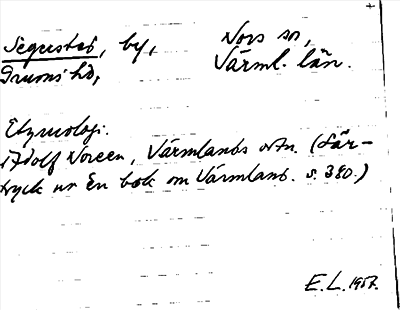 Segerstad, by, Nors sn,
Grums hd, Värml. län.
Etymologi.
Adolf Noreen, Värmlands ortn. (Sär-
tryck ur En bok om Värmland. s. 380.)
E.L. 1957.